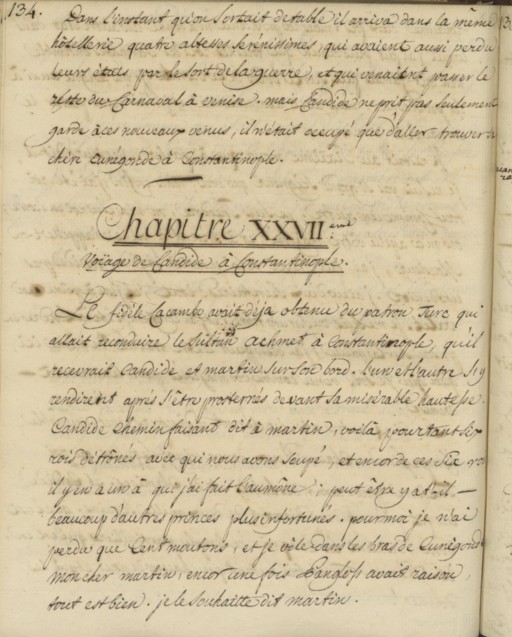 134.
Dans l'instant qu'on sortait de table il arriva dans la même
hôtellerie quatre altesses sérénissimes, qui avaient aussi perdu
leurs états par le sort de la guerre, et qui venaient passer le
reste du Carnaval à Venise. mais Candide ne prit pas seulement
garde à ces nouveaux venus, il n'était occupé que d'aller trouver sa
chère Cunégonde à Constantinople.
Chapitre XXVII.eme
Voiage de Candide à Constantinople.
Le fidèle Cacambo avait déja obtenu du patron Turc qui
allait reconduire le Sultan Achmet à Constantinople, qu'il
recevrait Candide et martin sur son bord. l'un et l'autre s'y
rendirent après s'être prosternés devant sa misérable hautesse.
Candide chemin faisant dit à martin, voilà pourtant six
rois détrônés avec qui nous avons soupé, et encor de ces six
il y en a un à que j'ai fait l'aumône. peut être y a t-il
beaucoup d'autres princes plus infortunés. pour moi je n'ai
perdu que Cent moutons, et je vole dans les bras de Cunégonde
mon cher martin, encor une fois Pangloss avait raison,
tout est bien. je le souhaitte dit martin.